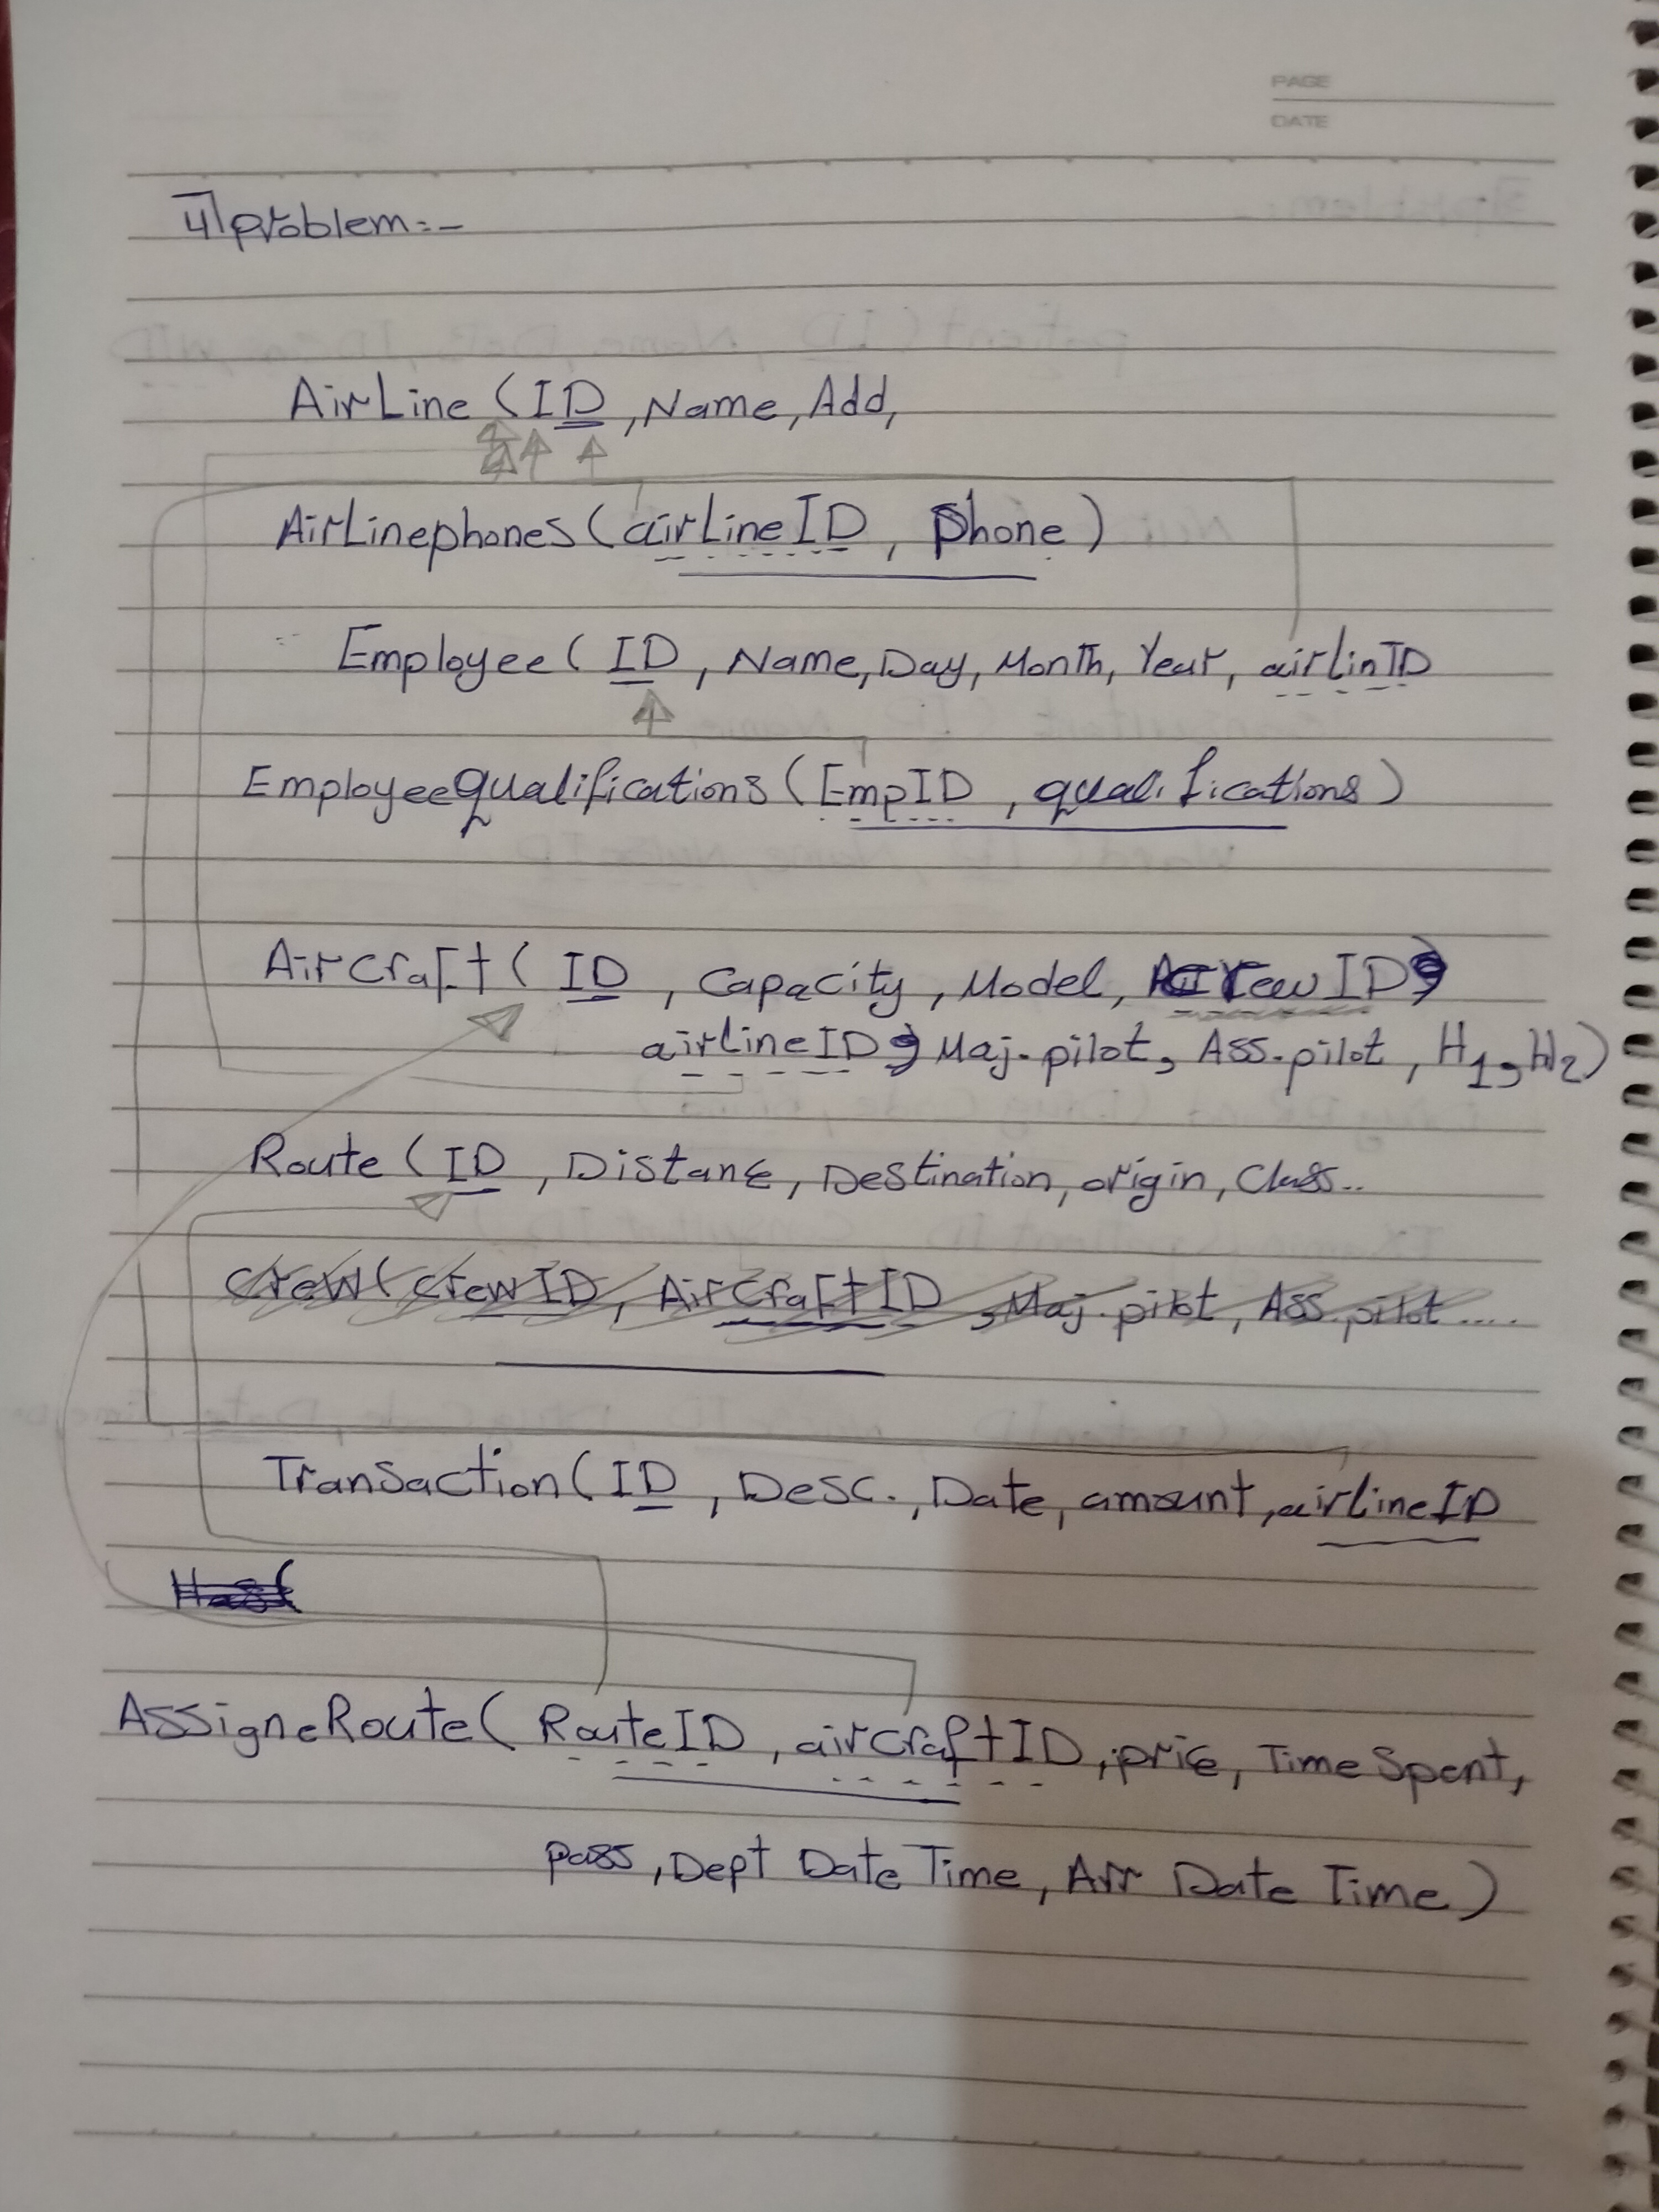 PAGE
DATE
4] problem:-
AirLine (ID, Name, Add,
AirLinephones (airLineID, Phone)
Employee (ID, Name, Day, Month, Year, airlinID
EmployeeQualifications (EmpID, qualifications)
AirCraft (ID, Capacity, Model, CrewID,
airlineID, Maj-pilot, Ass-pilot, H1, H2)
Route (ID, Distance, Destination, origin, Class..
Crew (CrewID, AirCraftID, Maj-pilot, Ass.pilot ....
Transaction (ID, Desc., Date, amount, airlineID
Has(
AssigneRoute (RouteID, airCraftID, price, Time Spent,
pass, Dept Date Time, Arr Date Time)